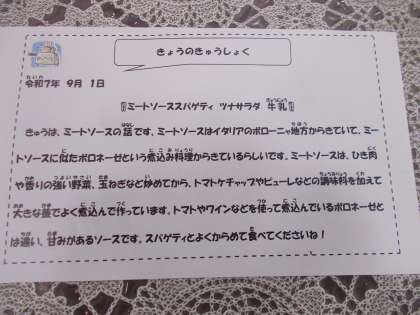 きょうのきゅうしょく
令和7年 9月 1日
ミートソーススパゲティ ツナサラダ 牛乳
きゅうは、ミートソースの話です。ミートソースはイタリアのボローニャ地方からきていて、ミー
トソースに似たボロネーゼという煮込み料理からきているらしいです。ミートソースは、ひき肉
や香りの強い野菜、玉ねぎなど炒めてから、トマトケチャップやピューレなどの調味料を加えて
大きな釜でよく煮込んで作っています。トマトやワインなどを使って煮込んでいるボロネーゼと
は違い、甘みがあるソースです。スパゲティとよくからめて食べてくださいね！